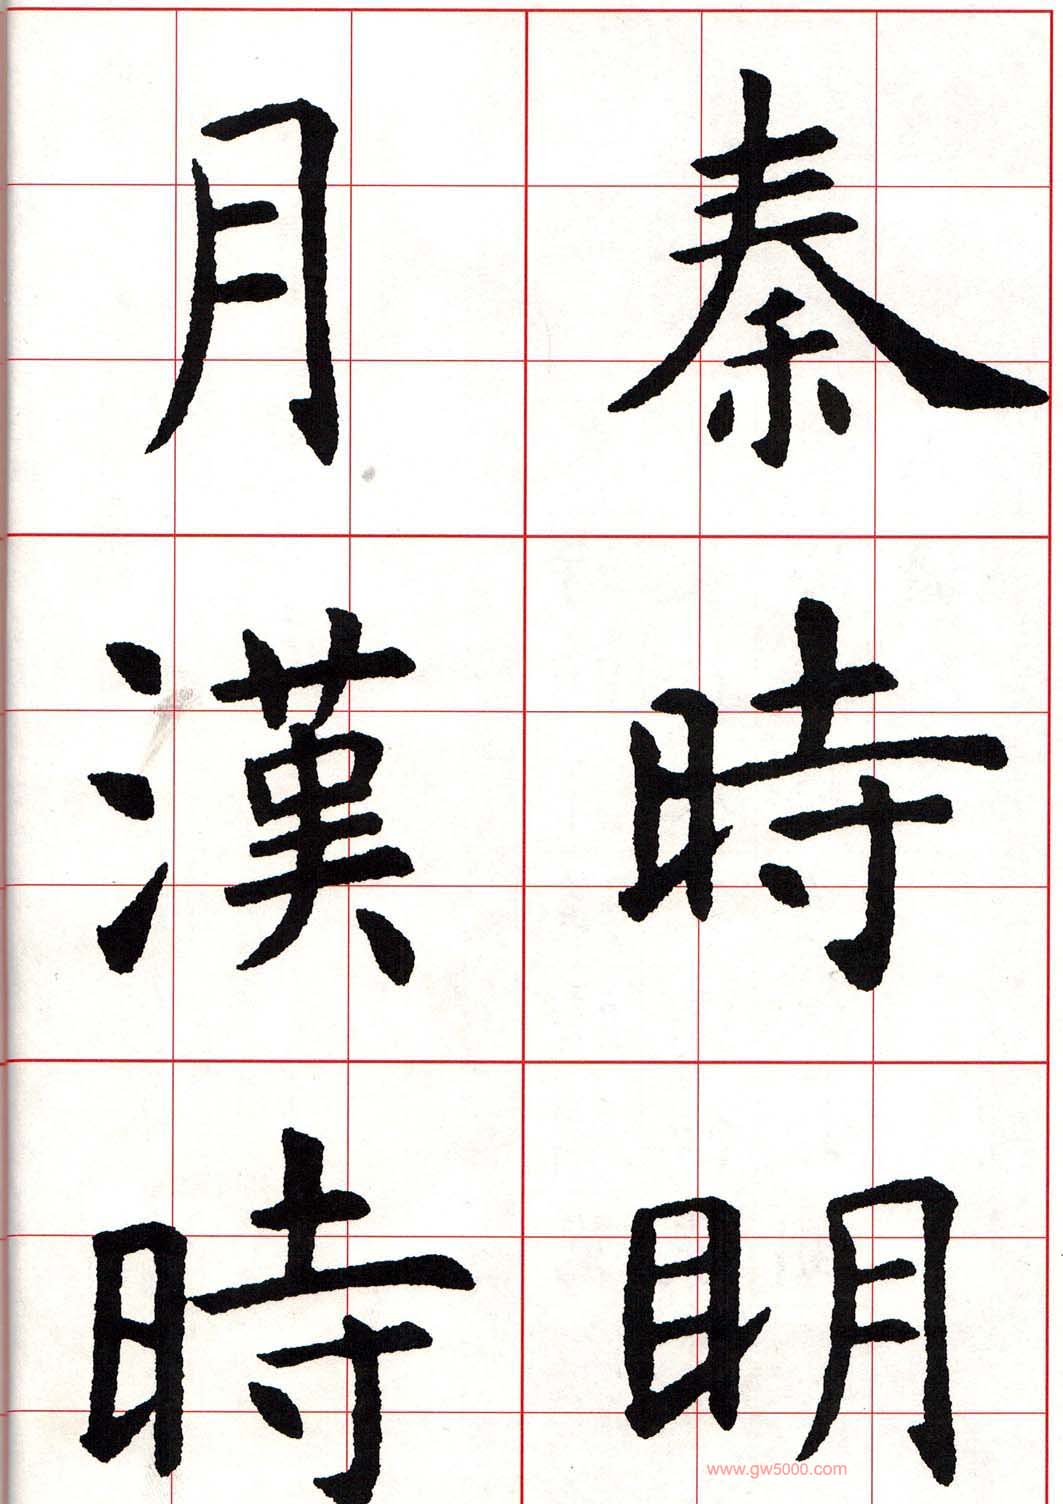 秦時明
月漢時
www.gw5000.com